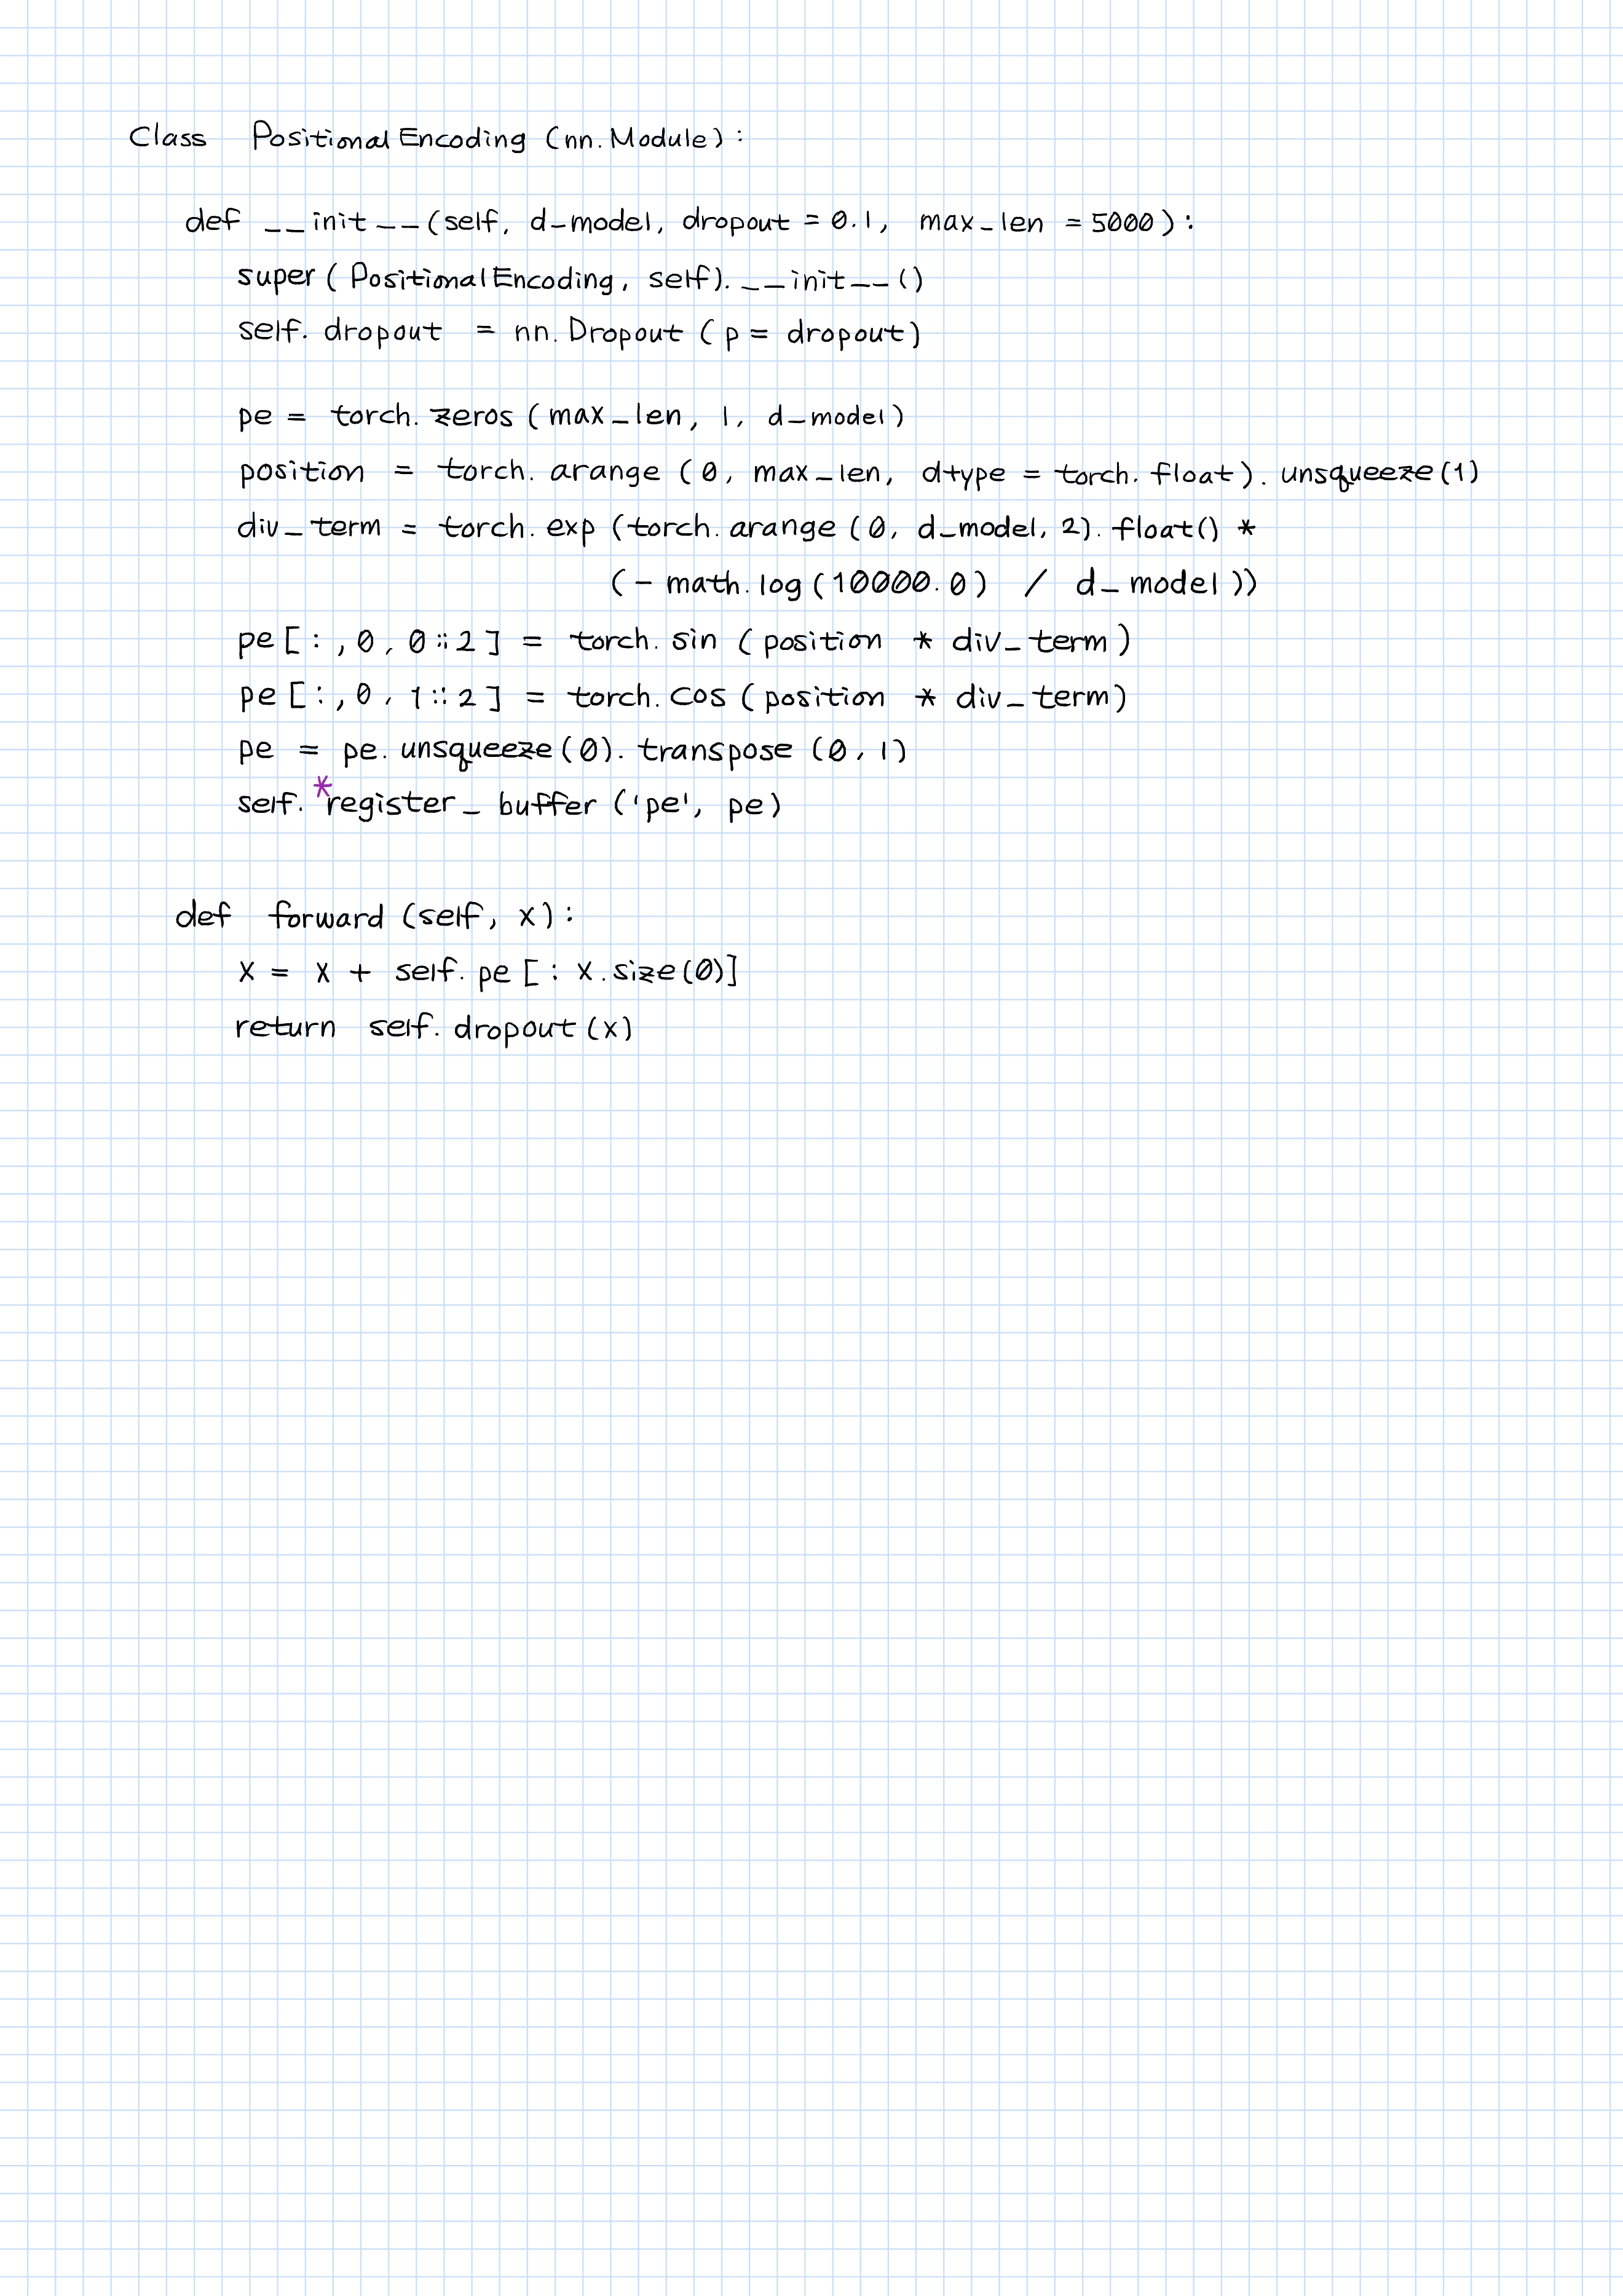 Class PositionalEncoding (nn.Module):
def __init__(self, d-model, dropout = 0.1, max_len = 5000):
super(PositionalEncoding, self).__init__()
self.dropout = nn.Dropout(p = dropout)
pe = torch.zeros(max_len, 1, d_model)
position = torch.arange(0, max_len, dtype = torch.float).unsqueeze(1)
div_term = torch.exp(torch.arange(0, d_model, 2).float() *
(-math.log(10000.0) / d_model))
pe[:, 0, 0::2] = torch.sin(position * div_term)
pe[:, 0, 1::2] = torch.cos(position * div_term)
pe = pe.unsqueeze(0).transpose(0, 1)
self.*register_buffer('pe', pe)
def forward(self, x):
x = x + self.pe[: x.size(0)]
return self.dropout(x)